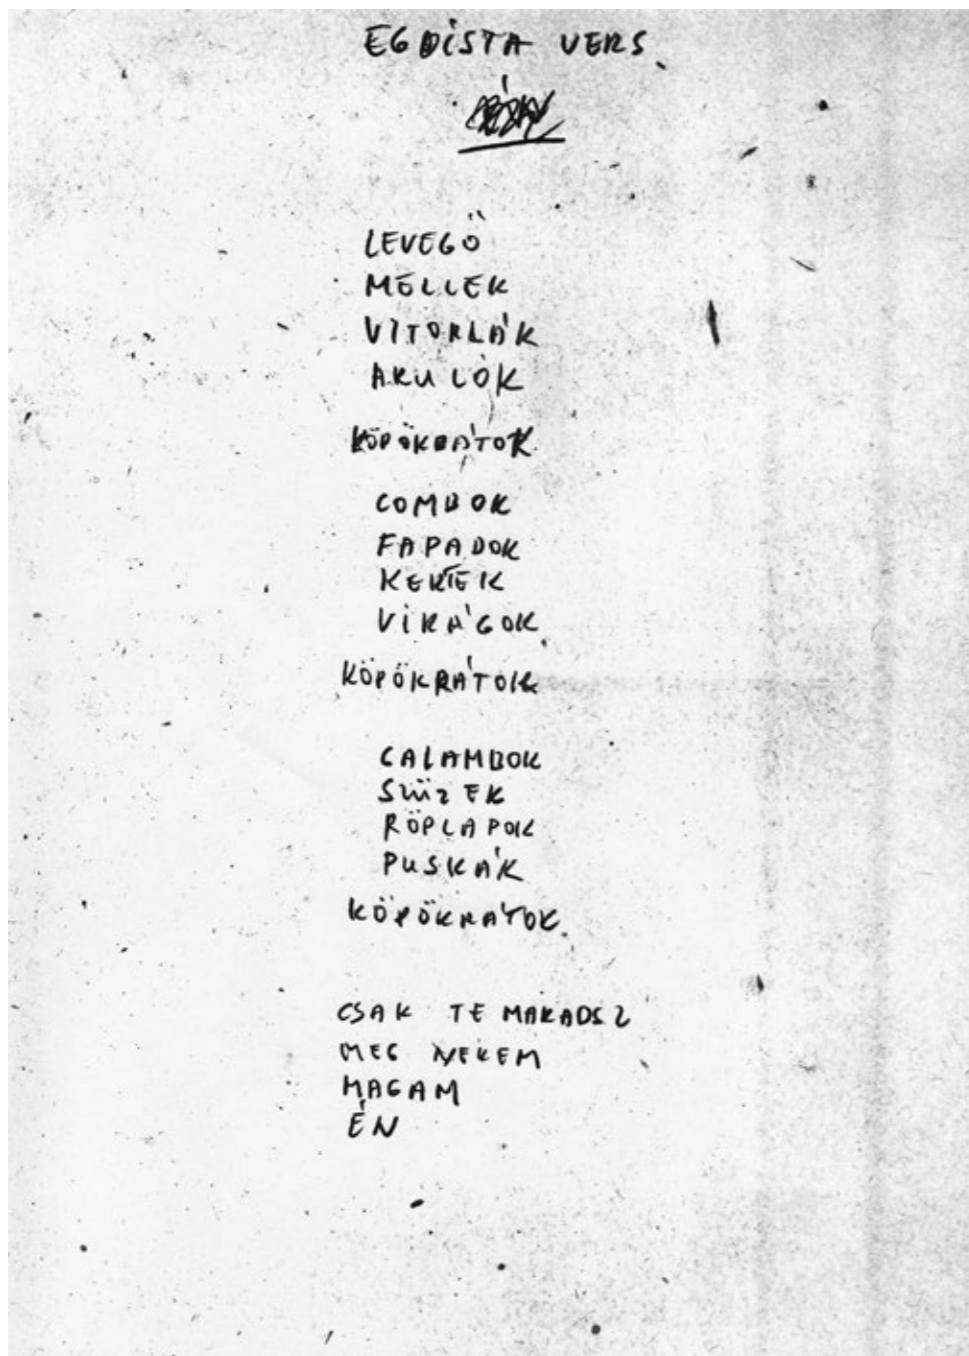 EGOISTA VERS
LEVEGŐ
MELLEK
VITORLÁK
AKULÓK
KÖPÖKRÁTOK
COMBOK
FAPADOK
KERTEK
VIRÁGOK
KÖPÖKRÁTOK
GALAMBOK
SZÜZEK
RÖPLAPOK
PUSKÁK
KÖPÖKRÁTOK
CSAK TE MARADSZ
MEG NEKEM
MAGAM
ÉN